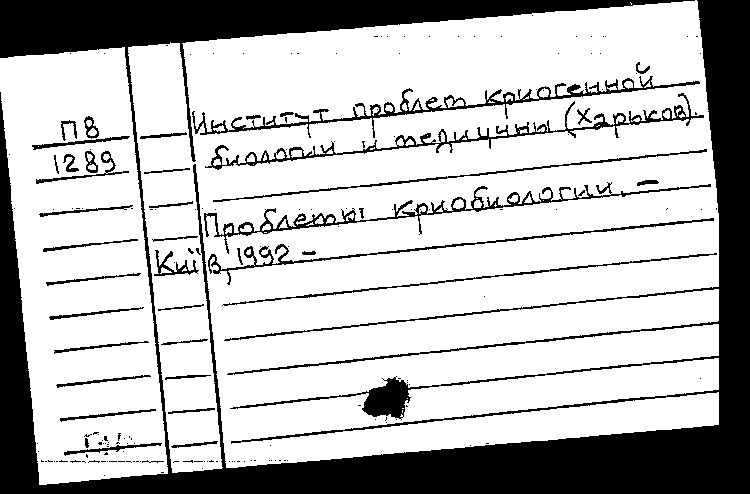 П8
1289
Институт проблем криогенной
биологии и медицины (Харьков).
Проблемы криобиологии. –
Київ, 1992 –